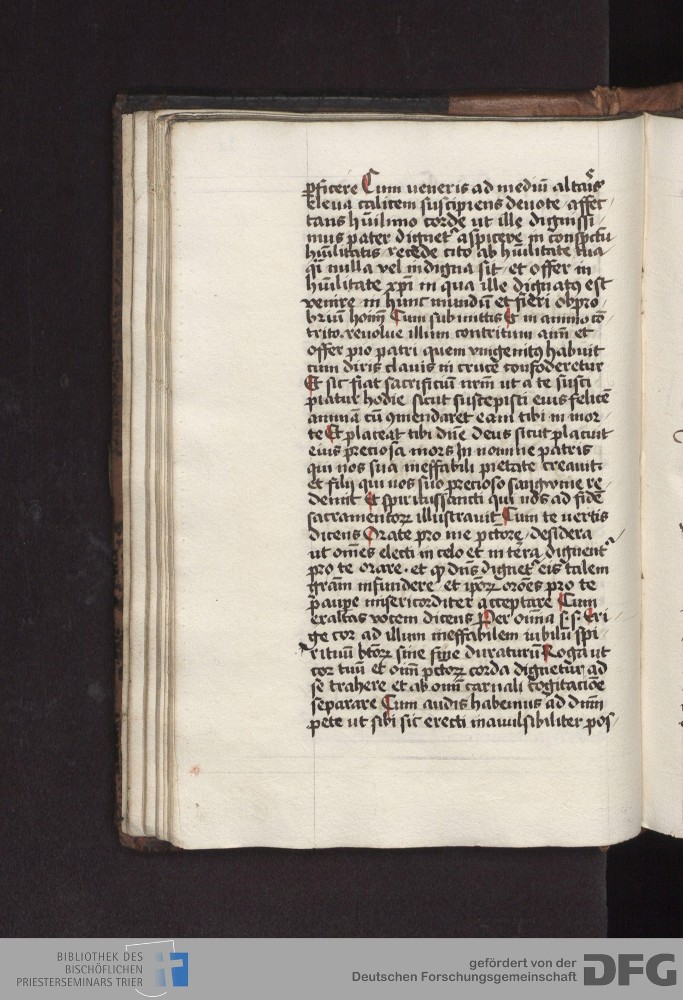 ꝑficere Cum ueneris ad mediū altaris
eleua calicem suscipiens deuote affec
tans hūilimo corde ut ille dignissi
mus pater dignet᷑ aspicere in conspctu
hūilitatis recede cito ab hūilitate tua
qͥ nulla vel indigna sit et offer in
hūilitate xp̄i in qua ille dignatus est
venire in hunc mundū et fieri obpro
briū hom̄ Cum submittis Et in animo cō
trito reuolue illum contritum aīm et
offer pio patri quem vnigenitus habuit
cum diris clauis in cruce confoderetur
Et sic fiat sacrificiū nr̄m ut a te susci
piatur hodie sicut suscepisti eius felicē
animā cū ꝯmendaret eam tibi in mor
te Et placeat tibi dn̄e deus sicut placuit
eius preciosa mors In nomine patris
qui nos sua ineffabili pietate creauit
et filij qui nos suo precioso sangwine re
demit Et spiritussancti qui nos ad fidē
sacramentoꝝ illustrauit Cum te vertis
dicens Orate pro me pctōre desidera
ut om̄es electi in celo et in terra dignent᷑
pro te orare et ꝙ dn̄s dignet᷑ eis talem
gr̄am infundere et ipoꝝ orōes pro te
paupe misericorditer acceptare Cum
exaltas vocem dicens Per om̄ia s s Eri
ge cor ad illum ineffabilem iubilū spi
rituū btōꝝ sine fine duraturū Roga ut
cor tuū et om̄ pctōꝝ corda dignetur ad
se trahere et ab om̄i carnali cogitacōe
separare Cum audis habemus ad dn̄m
pete ut sibi sic erecti inauulsibiliter pos
BIBLIOTHEK DES
BISCHÖFLICHEN
PRIESTERSEMINARS TRIER
gefördert von der
Deutschen Forschungsgemeinschaft
DFG